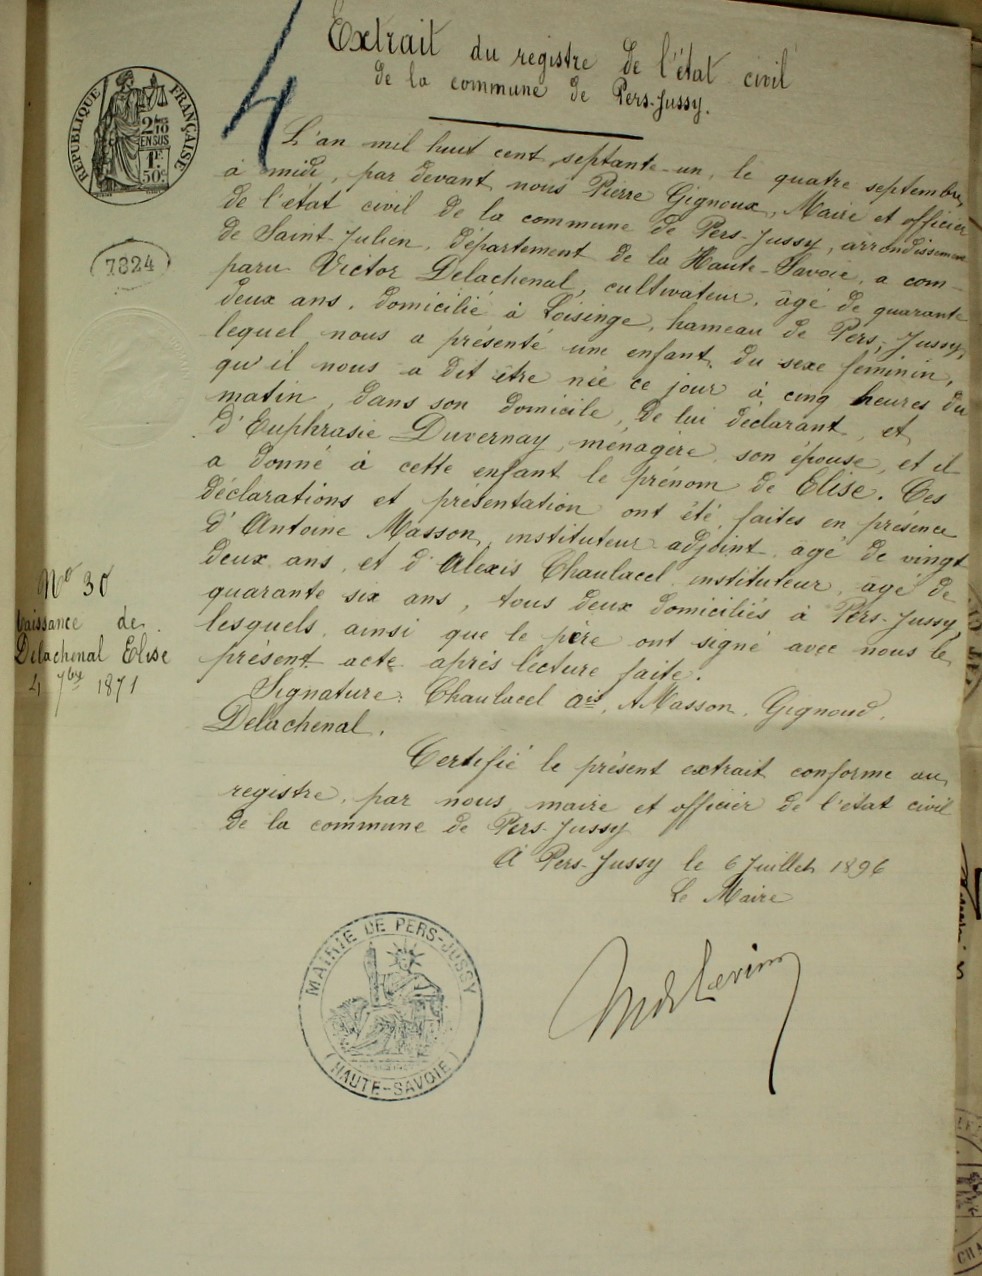 4
Extrait du registre de l'état civil
de la commune de Pers-Jussy.
RÉPUBLIQUE FRANÇAISE
2/10
EN SUS
1F.
50c
7824
L'an mil huit cent septante-un, le quatre septembre,
à midi, par devant nous Pierre Gignoux, Maire et officier
de l'état civil de la commune de Pers-Jussy, arrondissement
de Saint-Julien, département de la Haute-Savoie, a com-
paru Victor Delachenal, cultivateur, âgé de quarante
deux ans, domicilié à Loisinge, hameau de Pers-Jussy,
lequel nous a présenté une enfant du sexe féminin,
qu'il nous a dit être née ce jour à cinq heures du
matin, dans son domicile, de lui déclarant, et
d'Euphrasie Duvernay, ménagère, son épouse, et il
a donné à cette enfant le prénom de Elise. Ces
déclarations et présentation ont été faites en présence
d'Antoine Masson, instituteur adjoint, âgé de vingt
deux ans, et d'Alexis Chaulacel, instituteur, âgé de
quarante six ans, tous deux domiciliés à Pers-Jussy,
lesquels, ainsi que le père ont signé avec nous le
présent acte après lecture faite.
Signature: Chaulacel ais, AMasson, Gignoud,
Delachenal.
No 30
Naissance de
Delachenal Elise
4 7bre 1871
Certifié le présent extrait conforme au
registre, par nous, maire et officier de l'état civil
de la commune de Pers-Jussy
A Pers-Jussy le 6 Juillet 1896
Le Maire
MAIRIE DE PERS-JUSSY
(HAUTE-SAVOIE)